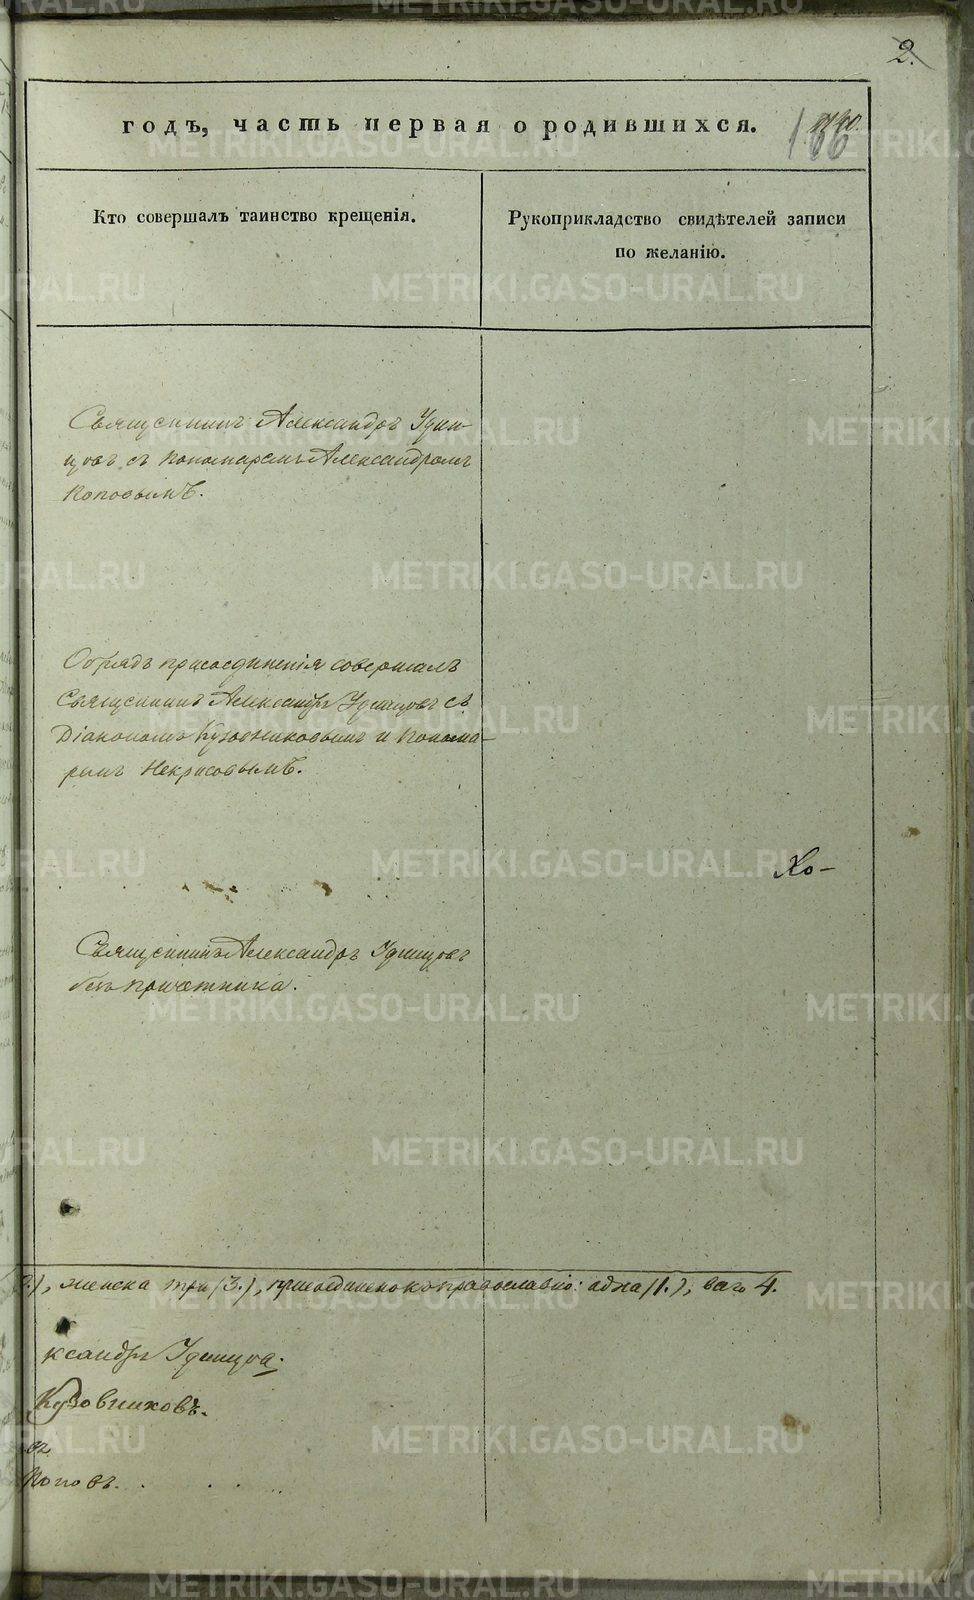 2.
годъ, часть первая о родившихся.
166
Кто совершалъ таинство крещенія.
Рукоприкладство свидѣтелей записи
по желанію.
Священникъ Александръ Удин-
цовъ съ Пономаремъ Александромъ
Поповымъ.
Обрядъ присоединенія совершалъ
Священникъ Александръ Удинцовъ съ
Діакономъ Кузовниковымъ и Понома-
ремъ Некрасовымъ.
Хо-
Священникъ Александръ Удинцовъ
безъ причетника.
), женска три (3.), присоединено къ православію: одна (1.), всего 4.
ксандръ Удинцова.
Кузовниковъ.
въ
Поповъ.
METRIKI.GASO-URAL.RU